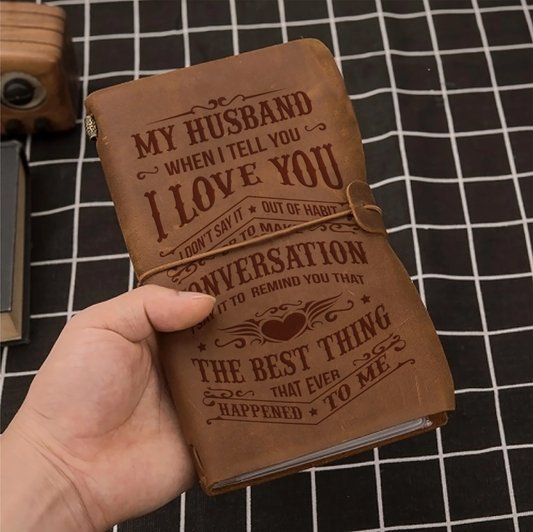 MY HUSBAND
WHEN I TELL YOU
I LOVE YOU
I DON'T SAY IT ★ OUT OF HABIT
OR TO MAKE
CONVERSATION
IT TO REMIND YOU THAT
THE BEST THING
THAT EVER
HAPPENED ★ TO ME